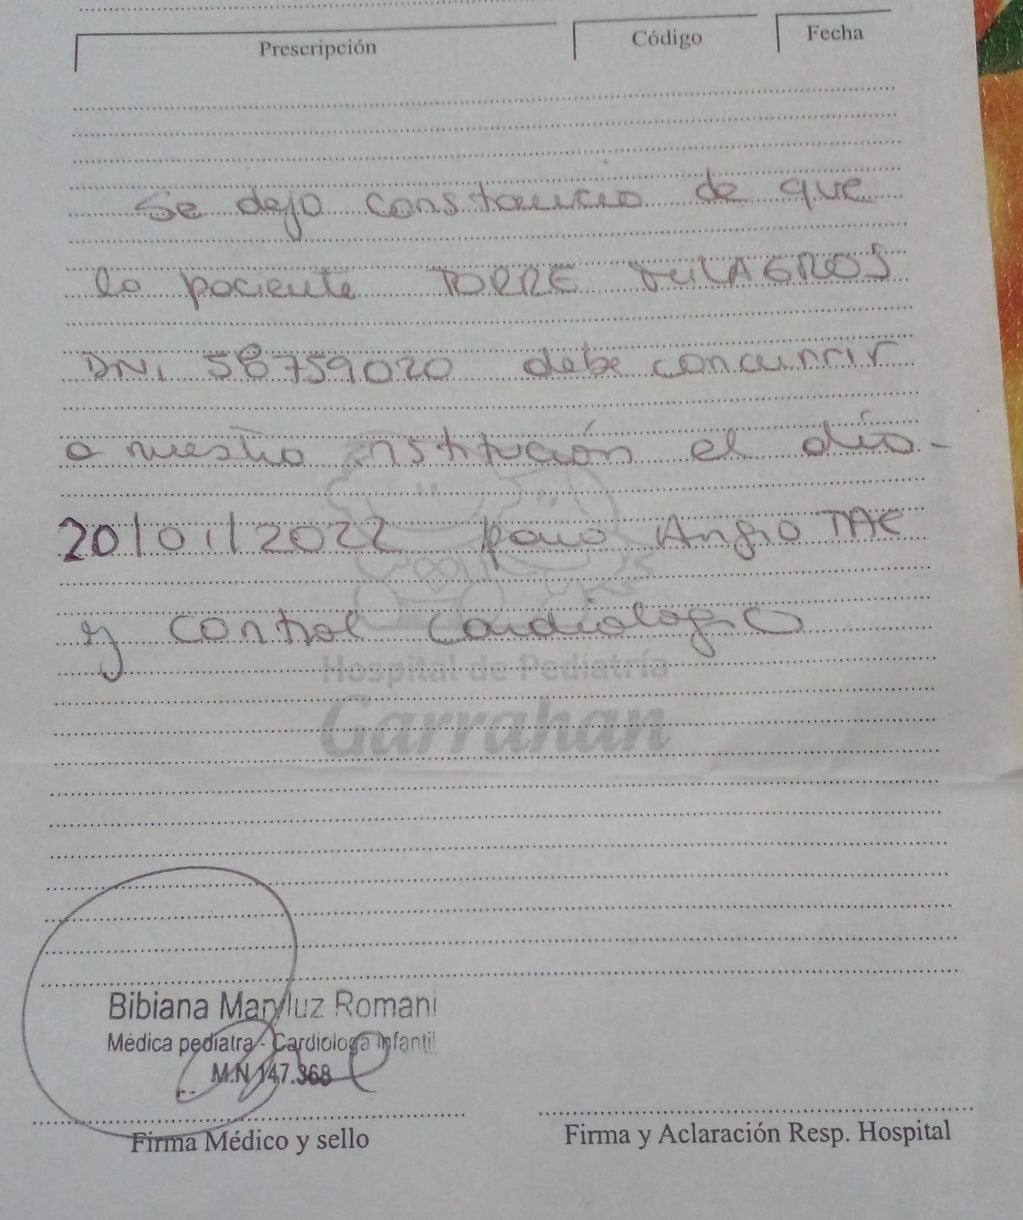 Prescripción Código Fecha
Se deja constancia de que
la paciente TORRE MILAGROS
DNI 58759020 debe concurrir
a nuestra institución el día
20/01/2022 para Angio TAC
y control cardiologico
Hospital de Pediatría
Garrahan
Bibiana Maryluz Romani
Médica pediatra - Cardiologa Infantil
M.N 147.368
Firma Médico y sello Firma y Aclaración Resp. Hospital